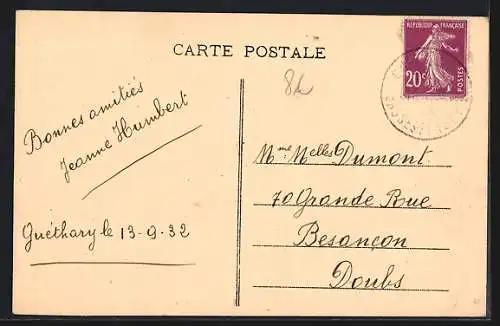 CARTE POSTALE
REPUBLIQUE FRANÇAISE
20c
POSTES
Bonnes amitiés
Jeanne Humbert
Guéthary le 13-9-32
Mme Melles Dumont
70 Grande Rue
Besançon
Doubs